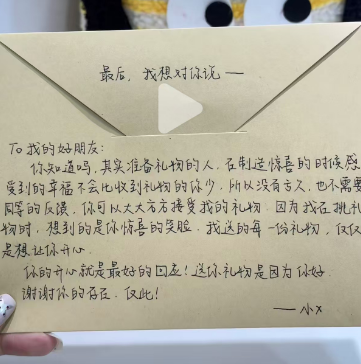 最后,我想对你说 —
To 我的好朋友:
你知道吗,其实准备礼物的人,在制造惊喜的时候感
受到的幸福不会比收到礼物的你少,所以没有亏欠,也不需要
同等的反馈,你可以大大方方接受我的礼物。因为我在挑礼
物时,想到的是你惊喜的笑脸,我送的每一份礼物,仅仅
是想让你开心。
你的开心就是最好的回应!送你礼物是因为你好.
谢谢你的存在.仅此!
——小X